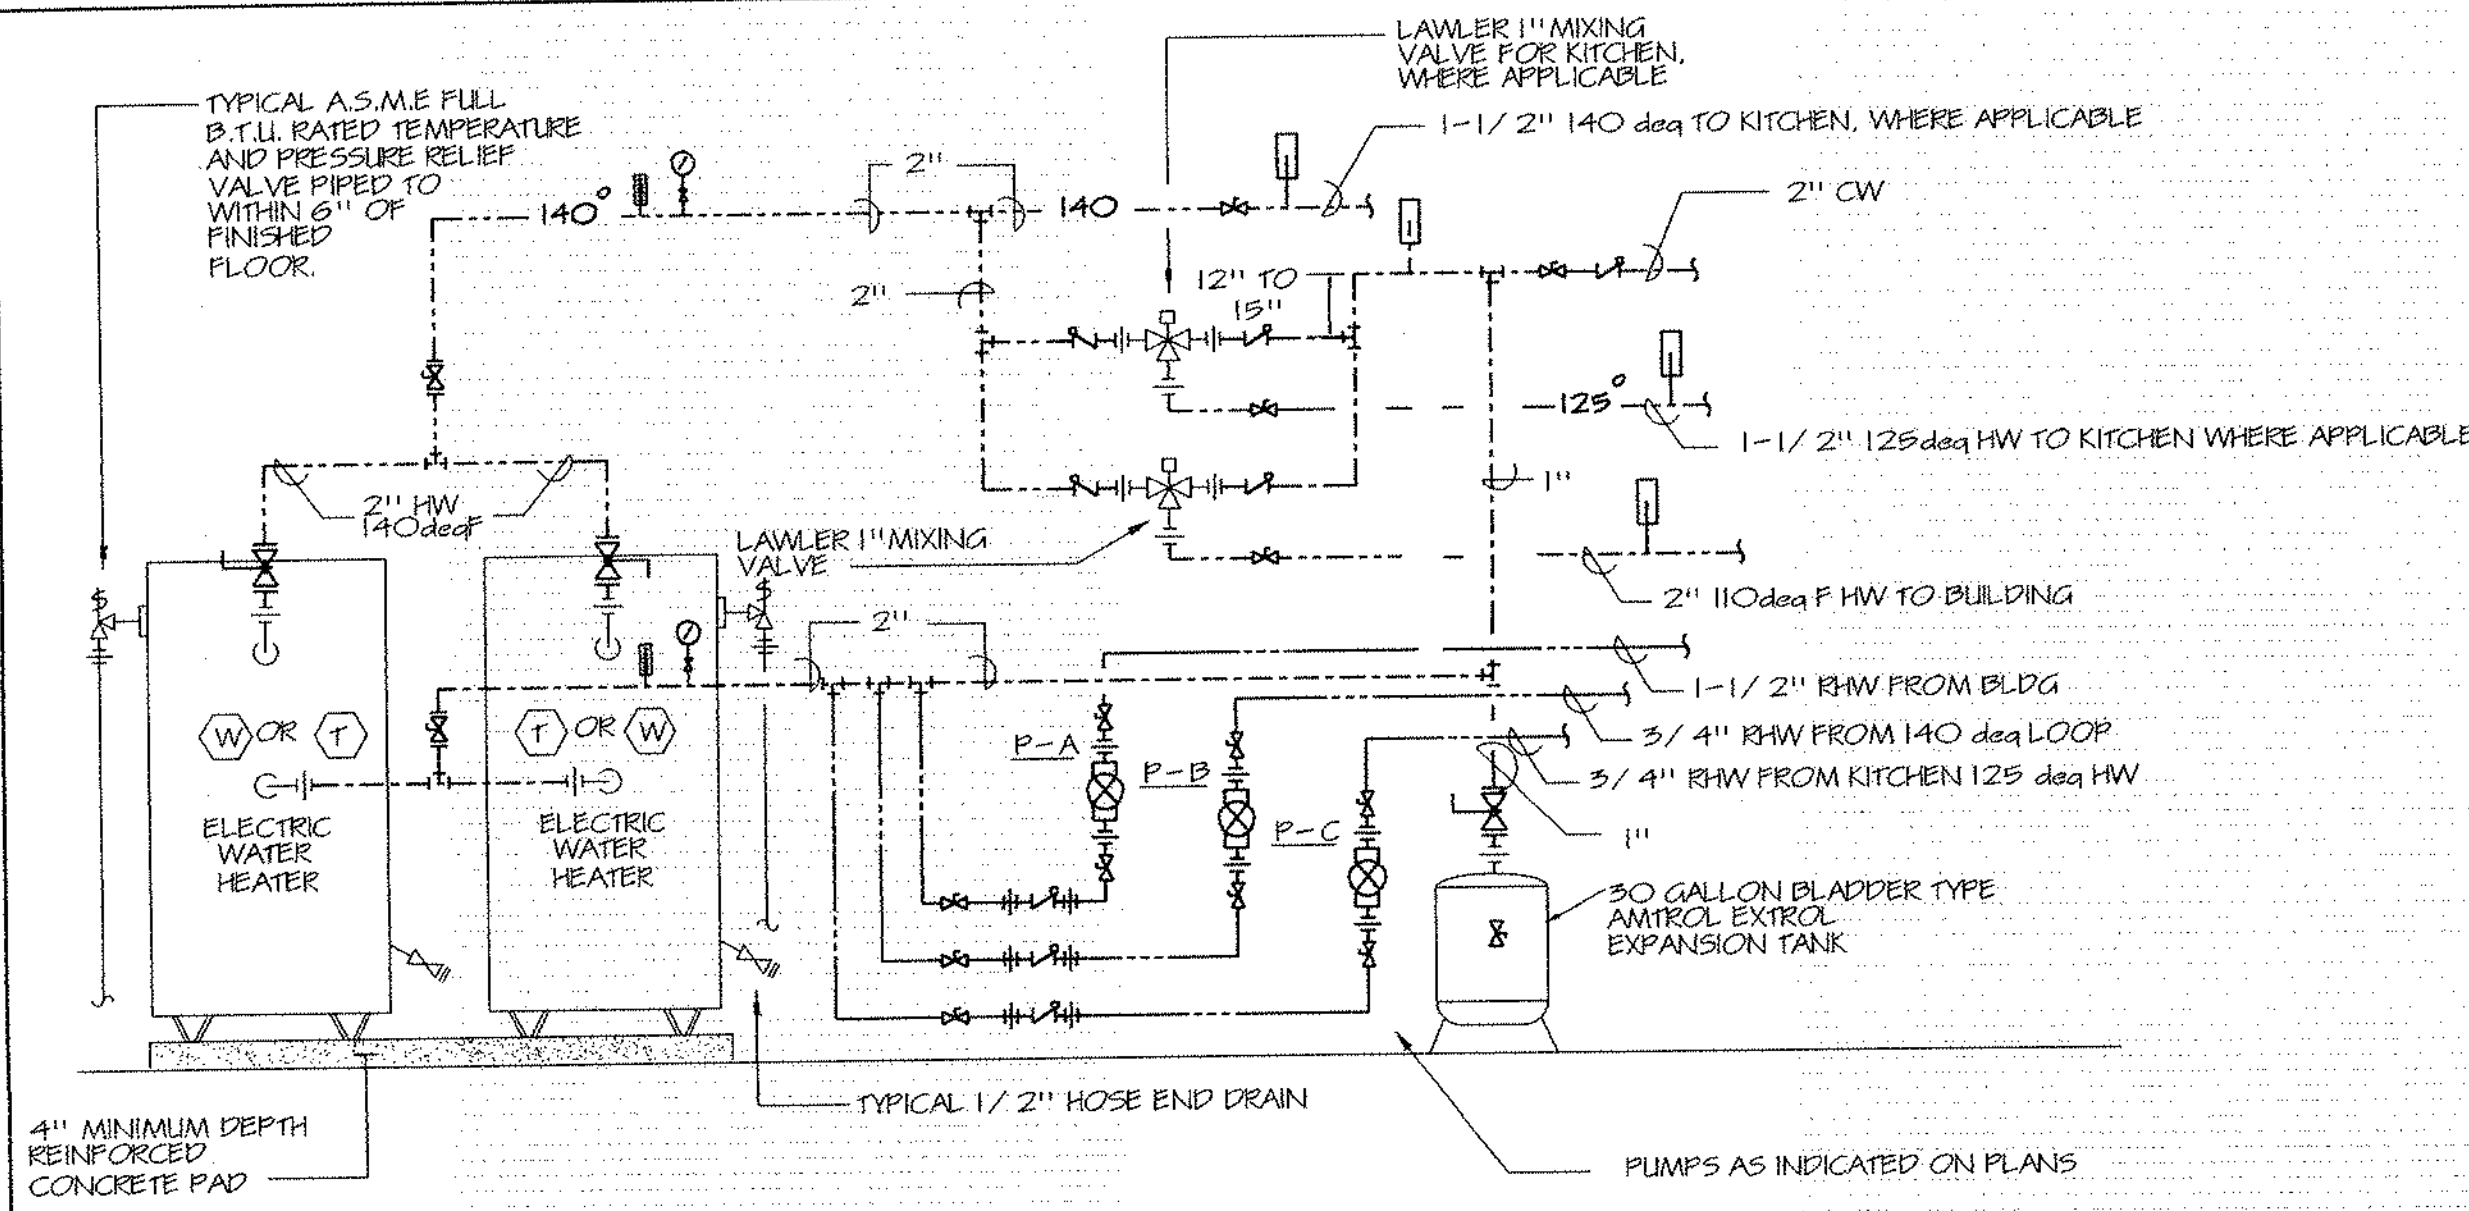 LAWLER 1" MIXING
VALVE FOR KITCHEN,
WHERE APPLICABLE
TYPICAL A.S.M.E FULL
B.T.U. RATED TEMPERATURE
AND PRESSURE RELIEF
VALVE PIPED TO
WITHIN 6" OF
FINISHED
FLOOR.
1-1/2" 140 deg TO KITCHEN, WHERE APPLICABLE
2"
2" CW
140°
140
2"
12" TO
15"
125°
1-1/2" 125deg HW TO KITCHEN WHERE APPLICABLE
2" HW
140degF
1"
LAWLER 1" MIXING
VALVE
2" 110deg F HW TO BUILDING
2"
1-1/2" RHW FROM BLDG
W OR T
T OR W
P-A
3/4" RHW FROM 140 deg LOOP
P-B
3/4" RHW FROM KITCHEN 125 deg HW
P-C
1"
ELECTRIC
WATER
HEATER
ELECTRIC
WATER
HEATER
30 GALLON BLADDER TYPE
AMTROL EXTROL
EXPANSION TANK
TYPICAL 1/2" HOSE END DRAIN
4" MINIMUM DEPTH
REINFORCED
CONCRETE PAD
PUMPS AS INDICATED ON PLANS